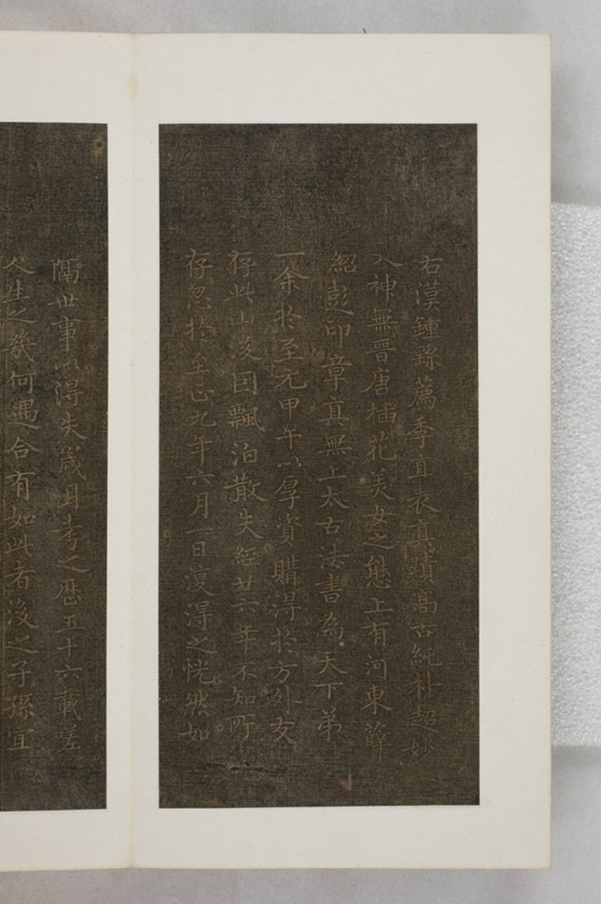 右漢鍾繇薦季直表真蹟高古純朴超妙
入神無晉唐插花美女之態上有河東薛
紹彭印章真無上太古法書為天下弟
一余於至元甲午以厚資購得於方外友
存此山後因飄泊散失經廿六年不知所
存忽於至正九年六月一日復得之恍然如
隔世事以得失歲月考之歷五十六載嗟
人生之幾何遇合有如此者後之子孫宜